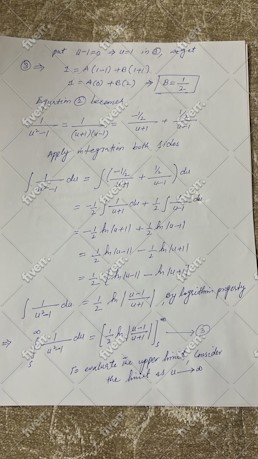 put u-1=0 ⇒ u=1 in ②, we get
③ ⇒ 1 = A(1-1) + B(1+1)
1 = A(0) + B(2) ⇒ B = 1/2
Equation ② becomes
1/(u²-1) = 1/((u+1)(u-1)) = (-1/2)/(u+1) + (1/2)/(u-1)
Apply integration both sides
∫ 1/(u²-1) du = ∫ ((-1/2)/(u+1) + (1/2)/(u-1)) du
= -1/2 ∫ 1/(u+1) du + 1/2 ∫ 1/(u-1) du
= -1/2 ln|u+1| + 1/2 ln|u-1|
= 1/2 ln|u-1| - 1/2 ln|u+1|
= 1/2 [ln|u-1| - ln|u+1|]
∫ 1/(u²-1) du = 1/2 ln |(u-1)/(u+1)|, by logarithmic property
⇒ ∫₅^∞ 1/(u²-1) du = [1/2 ln |(u-1)/(u+1)|]₅^∞ → ③
To evaluate the upper limit, consider
the limit as u → ∞
fiverr.